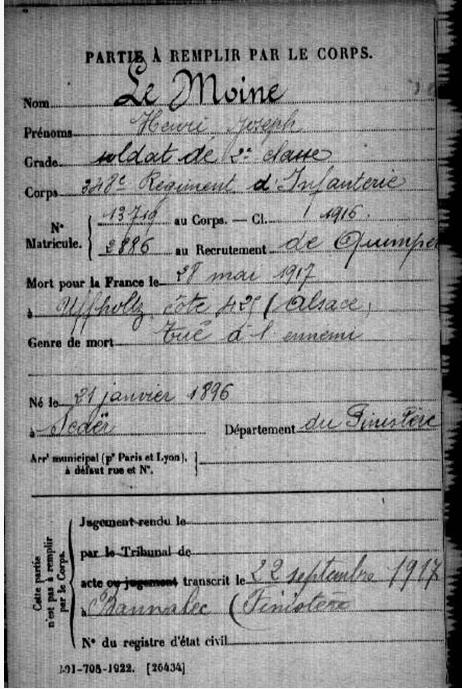 PARTIE À REMPLIR PAR LE CORPS.
Nom Le Moine
Prénoms Henri Joseph
Grade soldat de 2e classe
Corps 348e Régiment d'Infanterie
Nº Matricule. 13719 au Corps. — Cl. 1916.
2886 au Recrutement de Quimper
Mort pour la France le 28 mai 1917
à Uffholtz côte 425 (Alsace)
Genre de mort tué à l'ennemi
Né le 21 janvier 1896
à Département du Finistère
Arrᵗ municipal (pʳ Paris et Lyon),
à défaut rue et Nº.
Cette partie
n'est pas à remplir
par le Corps.
Jugement rendu le
par le Tribunal de
acte ou jugement transcrit le 22 septembre 1917
à Bannalec (Finistère
Nº du registre d'état civil
101-708-1922. [26434]